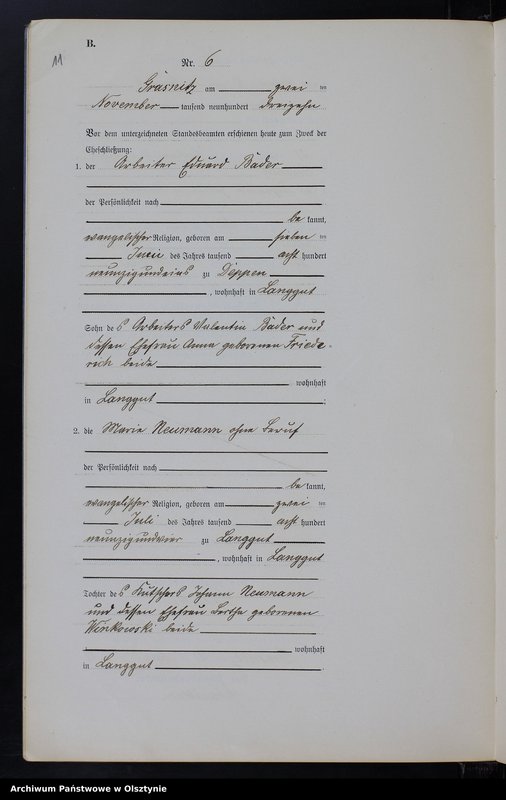 11
B.
Nr. 6
Grasnitz am zwei ten
November tausend neunhundert dreizehn
Vor dem unterzeichneten Standesbeamten erschienen heute zum Zweck der
Eheschließung:
1. der Arbeiter Eduard Bader
der Persönlichkeit nach
be kannt,
evangelischer Religion, geboren am sieben ten
Juni des Jahres tausend acht hundert
neunzigundeins zu Deppen
, wohnhaft in Langgut
Sohn des Arbeiters Valentin Bader und
dessen Ehefrau Anna geborenen Friede-
rich beide
wohnhaft
in Langgut ;
2. die Marie Neumann ohne Beruf
der Persönlichkeit nach
be kannt,
evangelischer Religion, geboren am zwei ten
Juli des Jahres tausend acht hundert
neunzigundvier zu Langgut
, wohnhaft in Langgut
Tochter des Kutschers Johann Neumann
und dessen Ehefrau Bertha geborenen
Winkowski beide
wohnhaft
in Langgut .
Archiwum Państwowe w Olsztynie